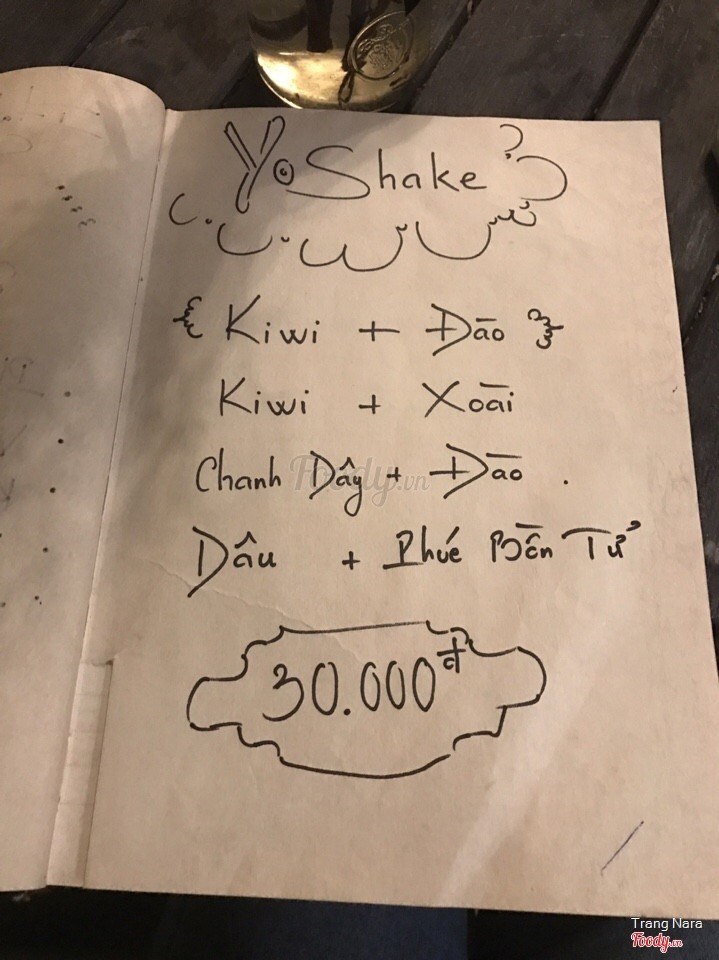 YoShake
Kiwi + Đào
Kiwi + Xoài
Chanh Dây + Đào
Dâu + Phúc Bồn Tử
30.000đ
Foody.vn
Trang Nara
Foody.vn